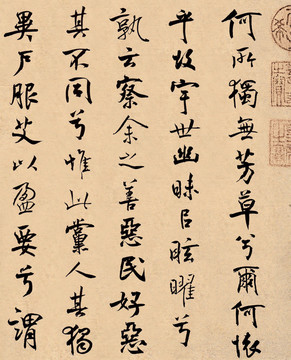 何所獨無芳草兮爾何懷
乎故宇世幽昧以眩曜兮
孰云察余之善惡民好惡
其不同兮惟此黨人其獨
異戶服艾以盈要兮謂